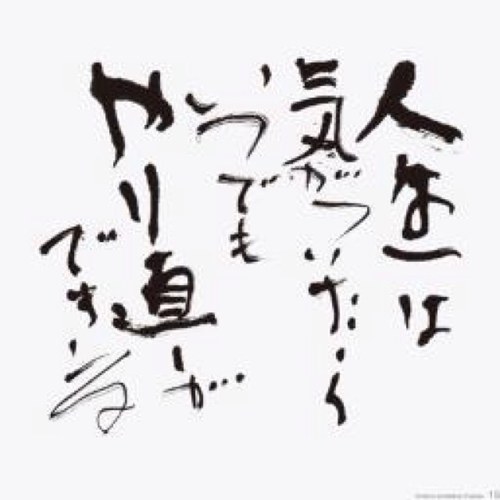 人生は
気がついたら
いつでも
やり直しが
できる